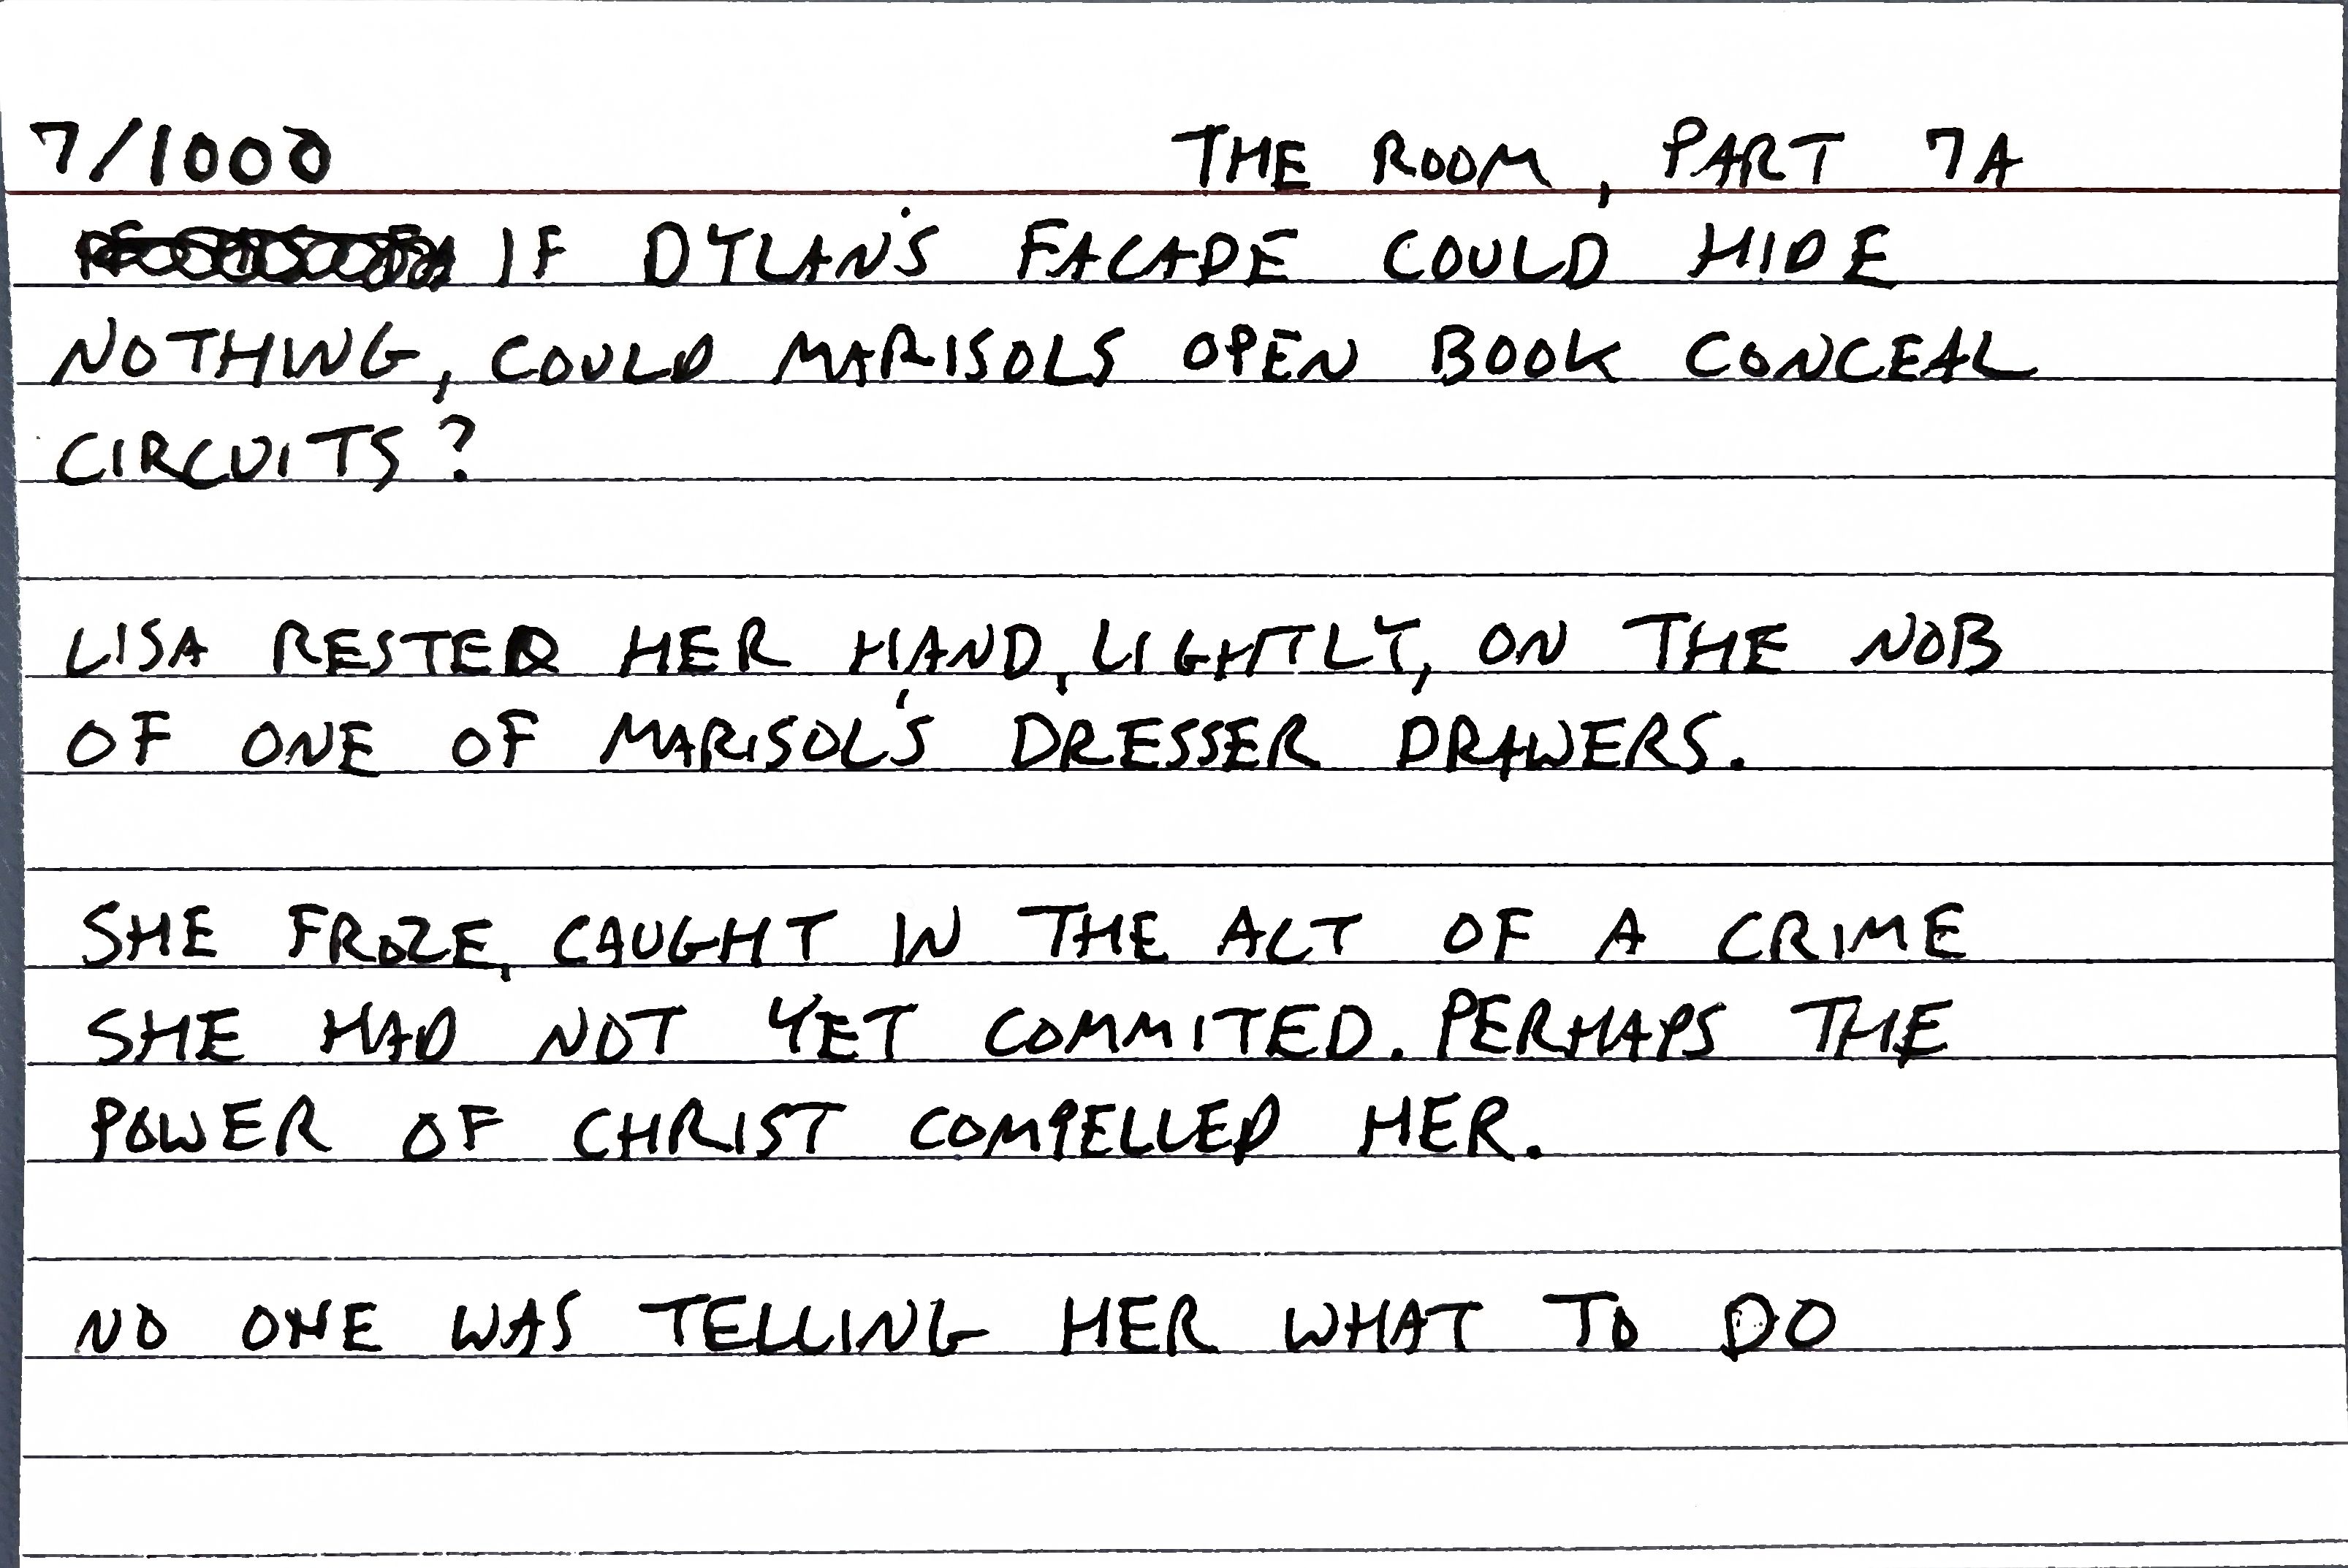 7/1000 THE ROOM, PART 7A
IF DYLAN'S FACADE COULD HIDE
NOTHING, COULD MARISOLS OPEN BOOK CONCEAL
CIRCUITS?
LISA RESTED HER HAND, LIGHTLY, ON THE NOB
OF ONE OF MARISOL'S DRESSER DRAWERS.
SHE FROZE, CAUGHT IN THE ACT OF A CRIME
SHE HAD NOT YET COMMITED. PERHAPS THE
POWER OF CHRIST COMPELLED HER.
NO ONE WAS TELLING HER WHAT TO DO